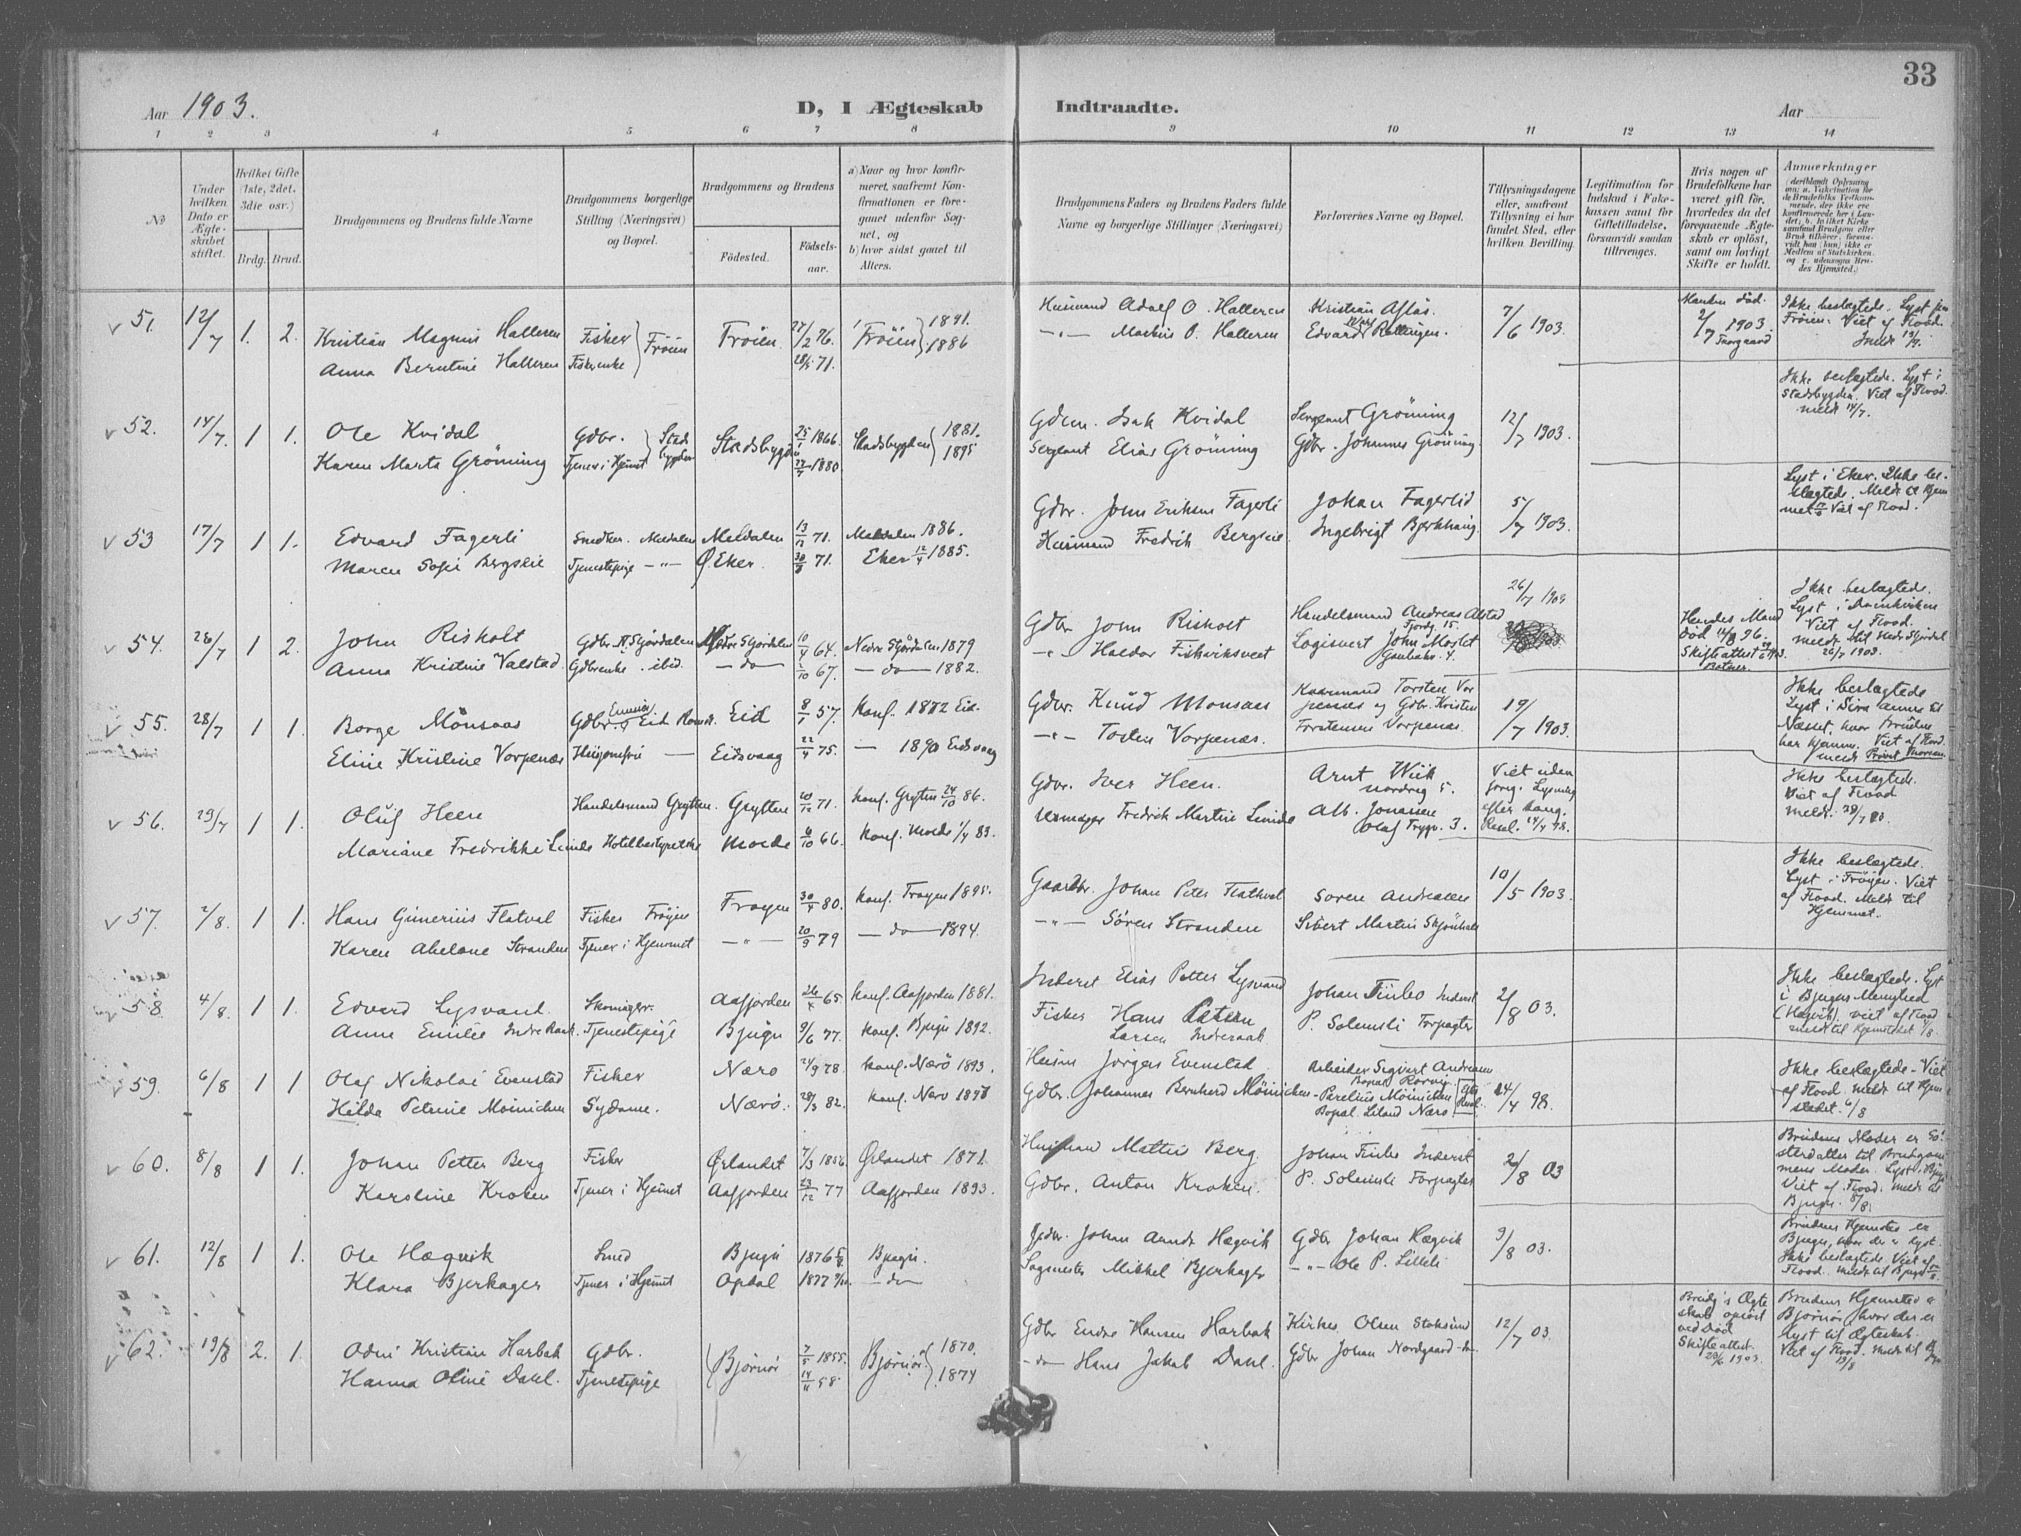 33
Aar 1903.
D, I Ægteskab Indtraadte.
Aar
1 2 3 4 5 6 7 8 9 10 11 12 13 14
No
Under hvilken Dato er Ægteskabet stiftet.
Hvilket Gifte (1ste, 2det, 3die osv.)
Brdg. Brud.
Brudgommens og Brudens fulde Navne
Brudgommens borgerlige Stilling (Næringsvei) og Bopæl.
Brudgommens og Brudens
Födested. Födselsaar.
a) Naar og hvor konfirmeret, saafremt Konfirmationen er foregaaet udenfor Sognet, og
b) hvor sidst gaaet til Alters.
Brudgommens Faders og Brudens Faders fulde Navne og borgerlige Stillinger (Næringsvei)
Forlovernes Navne og Bopæl.
Tillysningsdagene eller, saafremt Tillysning ei har fundet Sted, efter hvilken Bevilling.
Legitimation for Indskud i Enkekassen samt for Giftetilladelse, forsaavidt saadan tiltrænges.
Hvis nogen af Brudefolkene har været gift för, hvorledes da det foregaaende Ægteskab er oplöst, samt om lovligt Skifte er holdt.
Anmerkninger
51. 12/7 1. 2. Kristian Magnus Halleren Fisker Fröien Fröien 27/2 76. Fröien 1891. Husmand Adolf O. Halleren Kristian Aftös. 7/6 1903. Manden död. 2/7 1903 Ikke beslægtede. Lyst fra Fröien. Viet af Flood.
Anna Berntine Halleren Fiskerenke 28/5 71. 1886 —"— Martin O. Halleren Edvard Rottingen. Meldt 12/7.
52. 14/7. 1 1. Ole Kvidal Gdbr. Stadsbygden Stadsbygden 25/1 1866. Stadsbygden 1881. Gdbr. Isak Kvidal Sergeant Gröning 12/7 1903. Ikke beslægtede. Lyst i Stadsbygden. Viet af Flood. meldt 14/7.
Karen Marta Gröning Tjener i Hjemet 1880 1895 Sergeant Elias Gröning Gdbr. Johannes Gröning
53 17/7 1 1. Edvard Fagerli Snedker. Meldalen Meldalen 13/12 71. Meldalen 1886. Gdbr. John Eriksen Fagerli Johan Fagerlid 5/7 1903. Lyst i Eker. Ikke beslægtede. Meldt til Hjemmet Viet af Flood.
Maren Sofie Bergslie Tjenestepige —"— Ø. Eker. 71. Eker 12/4 1885. Husmand Fredrik Bergslie. Ingebrigt Bjerkhaug
54. 26/7 1 2 John Risholt Gdbr. N. Stjørdalen Nedre Stjørdalen 10/4 64. Nedre Stjördalen. 1879 Gdbr John Risholt Handelsmand Andreas Alstad Fjordg. 15. 26/7 1903 Hendes Mand död 96. Skifteattest Ikke beslægtede. Viet af Flood. meldt til Nedre Stjördal 26/7 1903.
Anna Kristine Valstad Gdbrenke ibid. —do— 1/10 67. —do— 1882. —"— Haldor Fiskviksveet Logisvert John Moslet
55. 28/7 1 1 Borge Mönsaas Gdbr. Eid Roms. Eid 8/1 57. Konf. 1872 Eid. Gdbr. Knud Monsaas Kaarmand Torsten Vorpenæs og Gdbr. Kristen Forstensen Vorpenæs. 19/7 1903. Ikke beslægtede Lyst i Næsset, hvor Bruden har hjemme. Viet af Flood.
Eline Kristine Vorpenæs — Eidsvaag 22/4 75. — 1890 Eidsvaag —"— Tosten Vorpenæs.
56. 29/7 1 1. Oluf Heen Handelsmand Grytten. Grytten 20/12 71. Konf. Grytten 24/10 86. Gdbr. Iver Heen. Arnt Wiik nordreg 5. Viet uden foreg. Lysning efter kong. Resol. 24/4 98. Ikke beslægtede. Viet af Flood meldt. 29/7 03.
Mariane Fredrikke Linde Hotelbestyrerske Molde 6/10 66. Konf. Molde 1/7 83. Urmager Fredrik Martin Linde Alb. Jonassen Olaf Trygv. 3.
57. 2/8. 1 1. Hans Gunerius Flatval Fisker Frøyen Frøyen 30/4 80. Konf. Frøyen 1895. Gaardbr. Johan Peter Flatval Soren Andreasen 10/5 1903. Ikke beslægtede. Lyst i Frøyen. Viet af Flood. Meldt til Hjemmet.
Karen Abelone Stranden Tjener i Hjemmet —"— 20/9 79 —do— 1894. —"— Sören Stranden Sivert Martin
58. 4/8. 1 1. Edvard Lysvand. Skomager. Aafjorden 26/4 65 Konf. Aafjorden 1881. Inderst Elias Petter Lysvand Johan Finbo Inderst 2/8 03. Ikke beslægtede. Lyst i Bjugns Menighed (Hegvik) viet af Flood meldt til Hjemstedet 4/8
Anne Emilie Tjenestepige Bjugn 9/6 77. Konf. Bjugn 1892. Fisker Hans Larsen P. Solemsli Forpagter
59. 6/8 1 1 Olaf Nikolai Evenstad Fisker Nærø 24/9 78 Konf. Nærö 1893. Husm Jörgen Evenstad Arbeider Sigvart Andresen Bopæl Rørvig. 24/4 98. Ikke beslægtede. Viet af Flood. meldt til Hjemstedet. 6/8
Hilda Petrine Möinichen Sydame. Nærö. 28/3 82. Konf. Nærø 1897 Gdbr. Johannes Bernhard Möinichen Parelius Möinichen Bopæl Liland Nærö.
60. 8/8 1 1. Johan Petter Berg Fisker Ørlandet 7/3 1856. Ørlandet 1871. Husmand Mattis Berg. Johan Finbo Inderst 2/8 03 Brudens Moder er Søsterdatter til Brudgommens Moder. Lyst i Bjugn Viet af Flood. meldt til Bjugn. 8/8.
Karoline Kroken Tjener i Hjemmet Aafjorden 23/12 77 Aafjorden 1893. Gdbr. Anton Kroken. P. Solemsli Forpagter
61. 12/8 1 1. Ole Hægvik Smed Bjugn 1876 Bjugn. Gdbr. Johan Arndt Hægvik Gdbr Johan Hægvik 9/8 03. Brudens Hjemsted er Bjugn, hvor der er lyst. Ikke beslægtede. Viet af Flood. meldt til Bjugn
Klara Bjerkager Tjener i Hjemmet Opdal 1877 —do— Sagmester Mikkel Bjerkager —"— Ole P. Lilleli
62. 19/8 2. 1. Odin Kristian Harbak Gdbr. Bjørnör 7/5 1855. Bjørnör 1870. Gdbr Endre Hansen Harbak Kirkes. Olsen Stoksund 12/7 03. Brudg's Ægteskab oplöst ved Død Skifteattest 1903. Brudens Hjemsted er Bjørnör, hvor der er lyst til Ægteskab. Viet af Flood. 19/8
Hanna Oline Dahl. Tjenestepige 14/11 58 1874 —do— Hans Jakob Dahl. Gdbr Johan Nordgaard